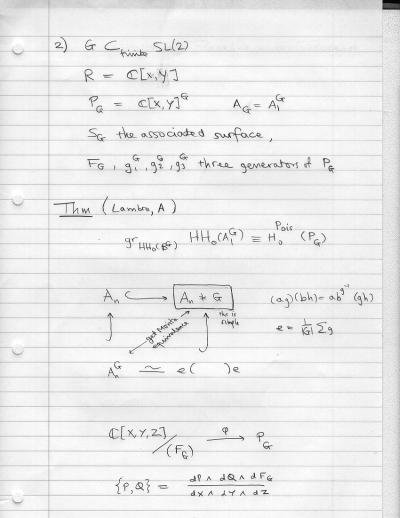 2) G ⊂ finite SL(2)
R = ℂ[x,y]
P_G = ℂ[x,y]^G A_G = A_1^G
S_G the associated surface,
F_G, g_1^G, g_2^G, g_3^G three generators of P_G
Thm (Lambre, A)
gr HH_0(A_1^G) ≡ H_0^Pois (P_G)
A_n ↪ A_n * G (ag)(bh) = ab^{g^{-1}} (gh)
this is simple
get Morita equivalence
e = 1/|G| Σg
A_n^G ≃ e( )e
ℂ[X,Y,Z]/(F_G) →φ P_G
{P,Q} = dP ∧ dQ ∧ dF_G / dX ∧ dY ∧ dZ